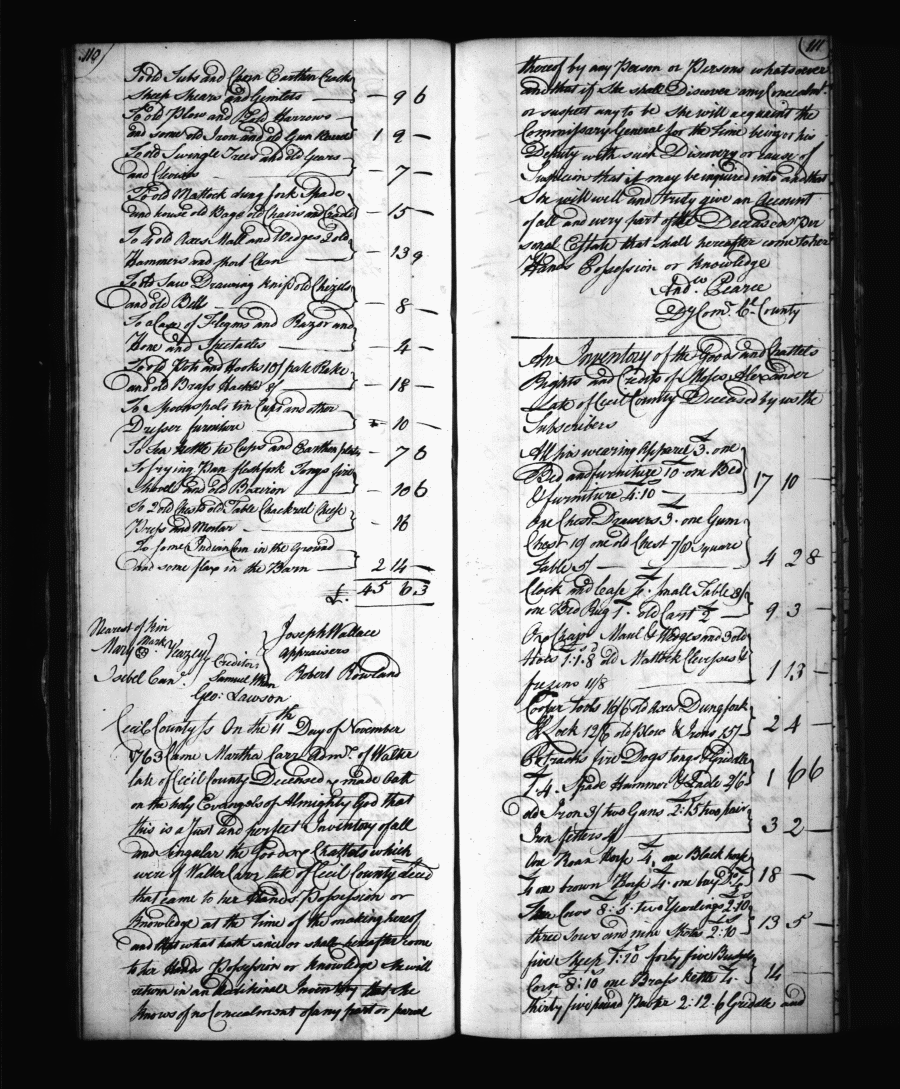 110
To old Tubs and Churn Earthen Crocks
Sheep Shears and Gimlets — 9 6
To old Plow and old Harrows
and some old Iron and old Gun 1 9 —
To old Swingle Trees and old Gears
and Clevises — 7 —
To old Mattock dung fork Spade
and house old Bags old Chairs and Cradle — 15 —
To 4 old Axes Mall and Wedges 2 old
Hammers and short Chain — 13 9
To old Saw Drawing Knife old Chizells
and old Bell — 8 —
To a Case of Flegms and Razor and
Hone and Spectacles — 4 —
To old Pots and Hooks 10/ pale Rake
and old Brass Hackle 8/ — 18 —
To Spoons pole tin Cups and other
Dresser furniture — 10 —
To Tea Kettle tee Cups and Earthen plates — 7 6
To frying Pan flesh fork Tongs fire
Shovel and old — 10 6
To 2 old Chests old Table Chackreel Cheese
Press and Mortar — 16
To some Indian Corn in the Ground
and some flax in the Barn 2 14 —
£. 45 6 3
Nearest of Kin
Mary Mark
Isebel Carr
Creditors
Samuel
Geo: Lawson
Joseph Wallace
Appraisers
Robert Rowland
Cecil County ss On the 11th Day of November
1763 Came Martha Carr Admx. of Walter
late of Cecil County Deceased & made Oath
on the holy Evangels of Almighty God that
this is a Just and perfect Inventory of all
and Singular the Goods & Chattels which
were of Walter Carr late of Cecil County deced
that came to her Hands Possession or
Knowledge at the Time of the making hereof
and that what hath since or shall hereafter come
to her Hands Possession or Knowledge she will
return in an additional Inventory that she
knows of no Concealment of any part or parcel
111
thereof by any Person or Persons whatsoever
and that if She shall Discover any Concealmt.
or suspect any to be She will acquaint the
Commissary General for the time being or his
Deputy with such Discovery or cause of
Suspicion that it may be inquired into and that
She will well and truly give an Account
of all and every part of the Deceaseds Per
sonal Estate that shall hereafter come to her
Hands Possession or Knowledge
Andw. Pearce
Dy Comy. Cl. County
An Inventory of the Goods and Chattels
Rights and Credits of Moses Alexander
Late of Cecil County Deceased by us the
Subscribers
All his wearing Apparel 3. one
Bed and furniture 10 one Bed
& furniture 4:10 — 17 10 —
One Chest Drawers 3. one Gum
Chest 10/ one old Chest 7/8 Square
Table 5/ — 4 2 8
Clock and Case 7. Small Table 8/
one Bed Rug 1. old Cart 2 — 9 3 —
One Maul & Wedges and 3 old
Hoes 1:1:8 old Mattock Clevises &
11/8 1 13 —
Cooper tools 16/6 old Axes Dungfork
& Lock 12/6 old plow & Irons 15/ 2 4 —
Potracks fire Dogs tongs & Griddle
1:4. Spade Hammer & 2/6 1 6 6
old Iron 3/ two Guns 2:15 two pair
Iron fetters 4/ 3 2 —
One Roan Horse 4. one Black horse
4 one brown Horse 4. one bay Do. 18 —
Cows 8:5. two Yearlings 2:10
three Sows and nine Shoats 2:10 13 5 —
five Sheep 1:10 forty five Bushels
Corn 8:10 one Brass kettle 4. 14 —
thirty five pound Pewter 2:12:6 Griddle and